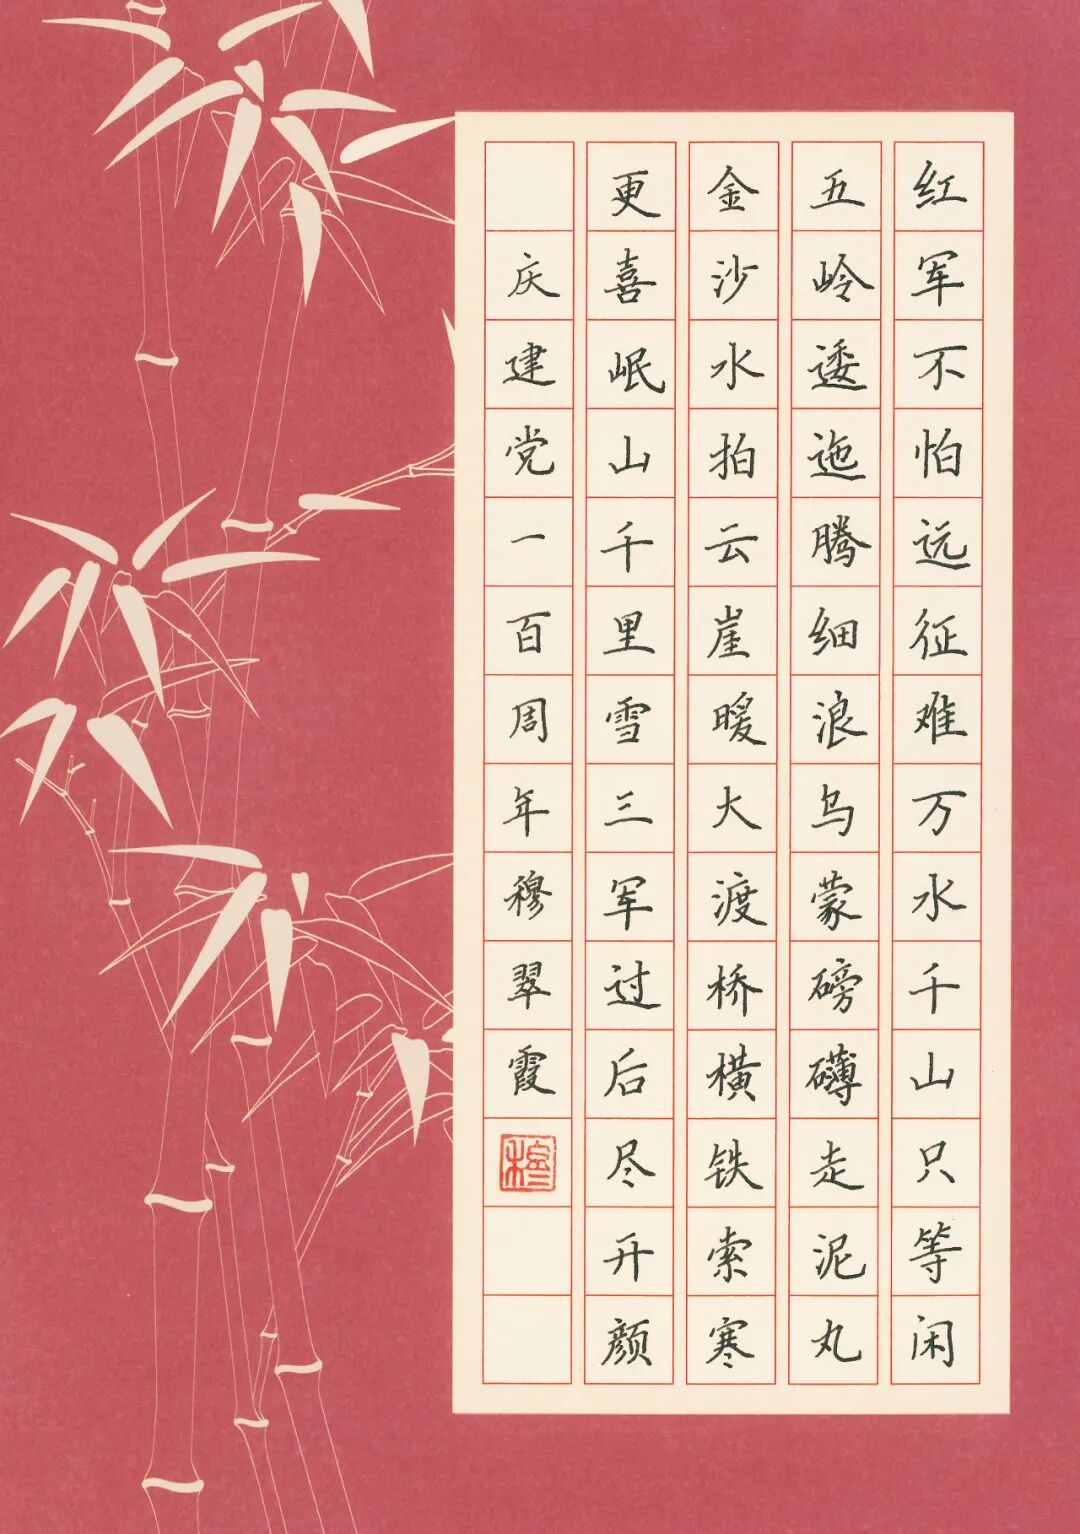 红军不怕远征难万水千山只等闲
五岭逶迤腾细浪乌蒙磅礴走泥丸
金沙水拍云崖暖大渡桥横铁索寒
更喜岷山千里雪三军过后尽开颜
庆建党一百周年穆翠霞
穆